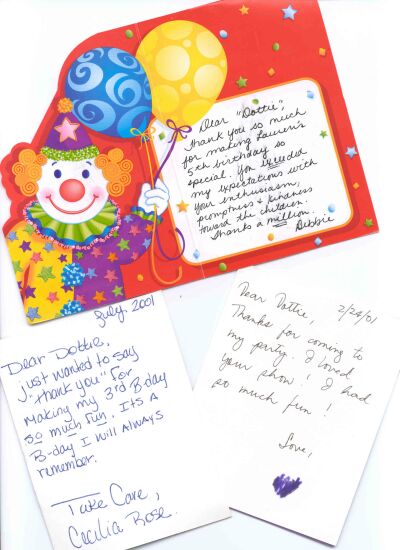 Dear "Dottie",
thank you so much
for making Lauren's
5th birthday so
special. You exceeded
my expectations with
your enthusiasm,
promptness & kindness
toward the children.
Thanks a million.
Debbie
July 2001
Dear Dottie,
just wanted to say
"thank you" for
making my 3rd B-day
so much fun. It's A
B-day I will Always
remember.
Take Care,
Cecilia Rose.
2/24/01
Dear Dottie,
Thanks for coming to
my party. I loved
your show! I had
so much fun!
Love,